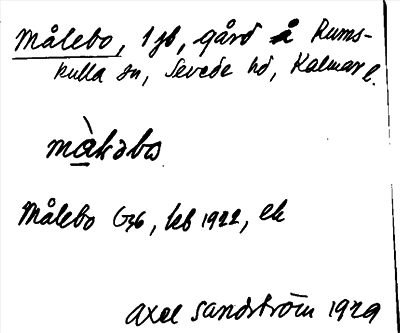 Målebo, 1 jb, gård å Rums-
kulla sn, Sevede hd, Kalmar l.
målebo
Målebo G36, kb 1922, ek
Axel Sandström 1929